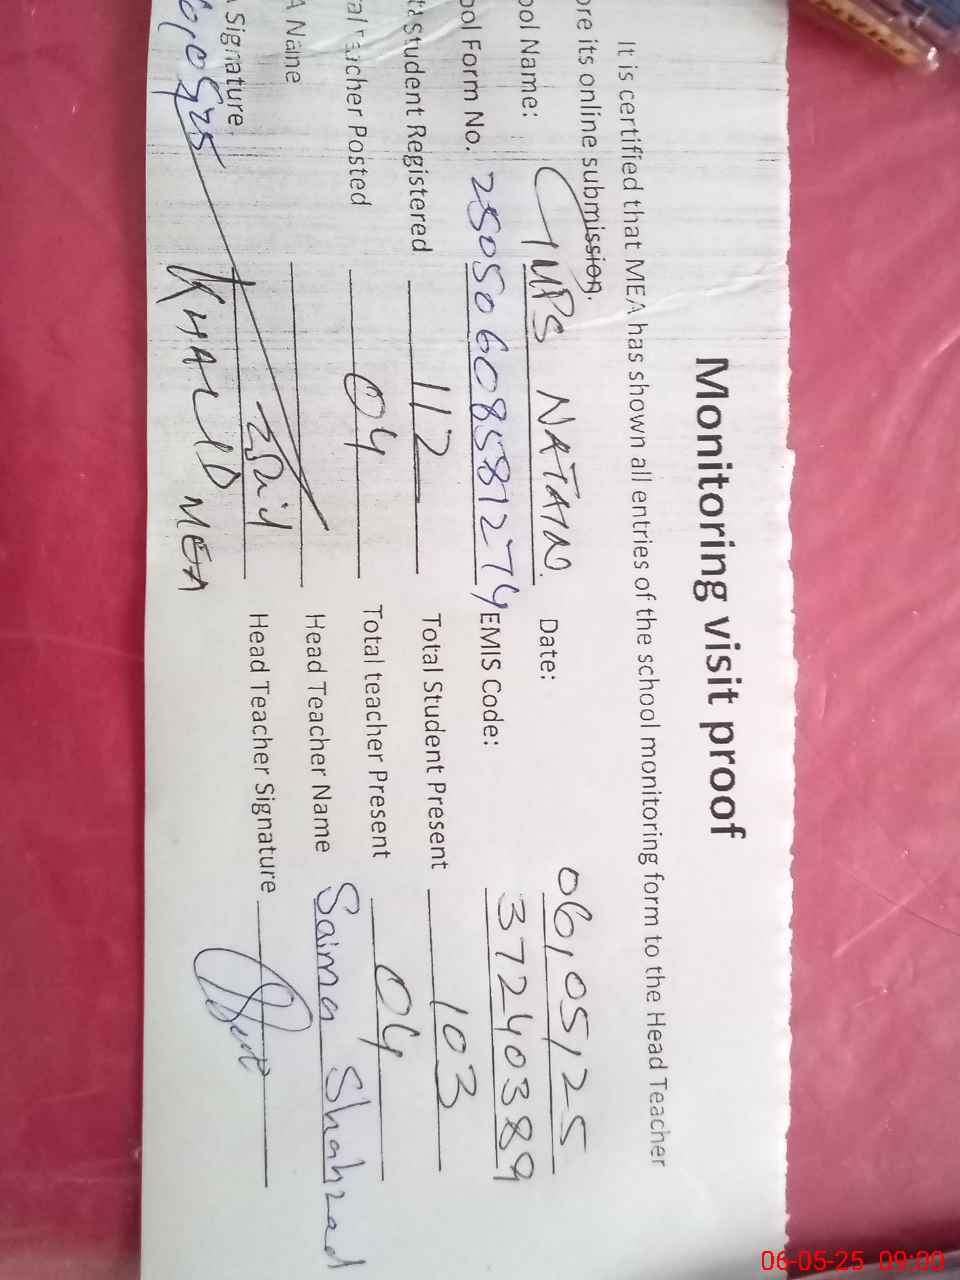 Monitoring visit proof
It is certified that MEA has shown all entries of the school monitoring form to the Head Teacher
ore its online submission.
ool Name: GMPS NATAIN. Date: 06,05,25
ool Form No. 250506085812774 EMIS Code: 37240389
ta Student Registered 112 Total Student Present 103
al Teacher Posted 04 Total teacher Present 04
A Name Head Teacher Name Saima Shahzad
A Signature Head Teacher Signature
KHALID MEA
06-05-25 09:00